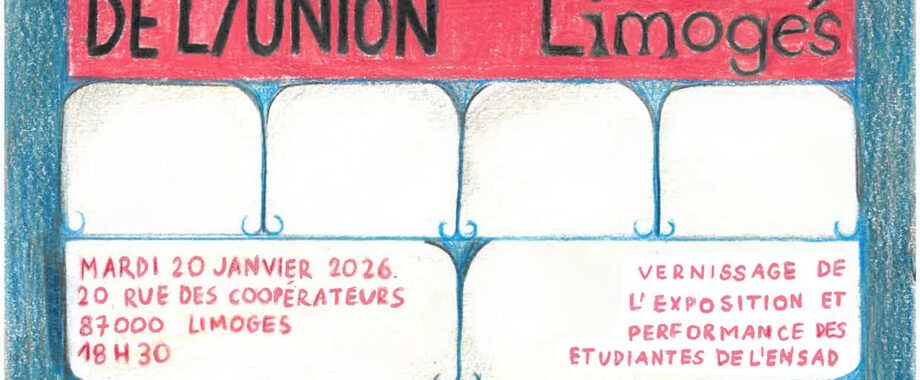 DE L'UNION Limoges
MARDI 20 JANVIER 2026.
20 RUE DES COOPÉRATEURS
87000 LIMOGES
18H30
VERNISSAGE DE
L'EXPOSITION ET
PERFORMANCE DES
ETUDIANTES DE L'ENSAD